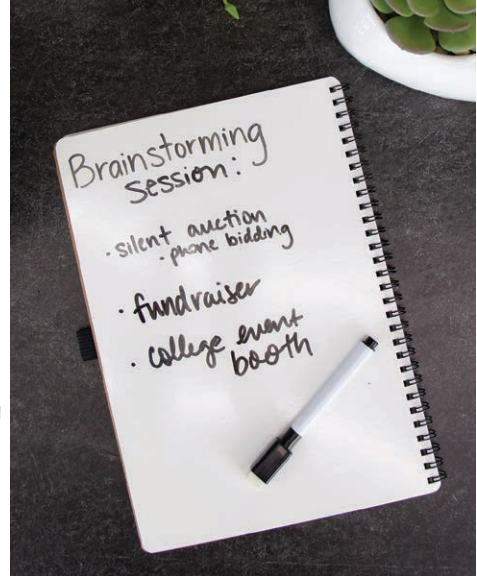 Brainstorming
session:
· silent auction
· phone bidding
· fundraiser
· college event
booth